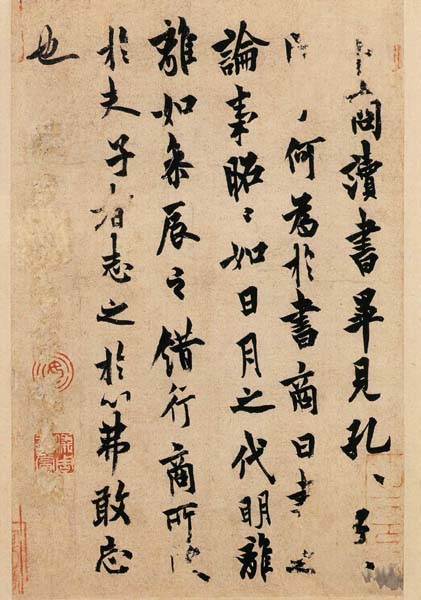 讀書畢見孔〻子〻
何為於書商曰書
論事昭〻如日月之代明離
離如參辰之錯行商所
於夫子者志之於心弗敢忘
也